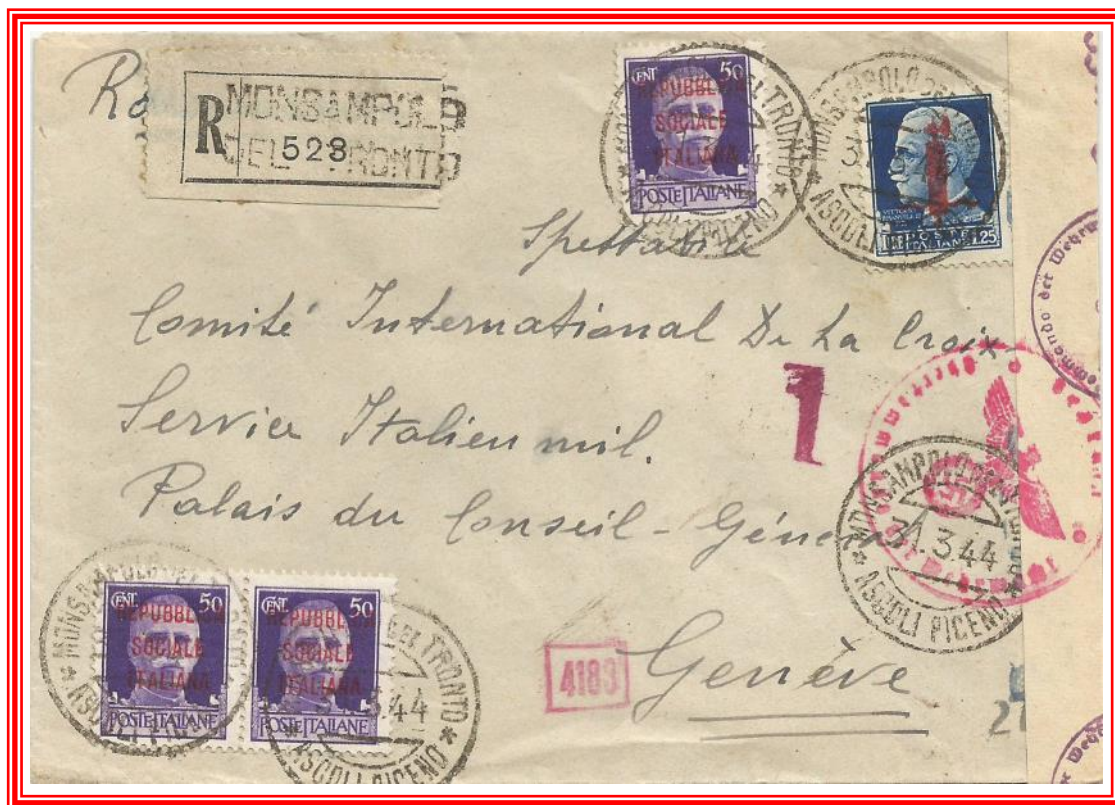 R
MONSAMPOLO
DEL TRONTO
523
CENT 50
REPUBBLICA
SOCIALE
ITALIANA
POSTE ITALIANE
ASCOLI PICENO
LIRE POSTE ITALIANE 1.25
Spettabile
Comité International De La Croix
Service Italien mil.
Palais du Conseil - Géné
Genève
1
MONSAMPOLO DEL TRONTO
31.3.44
* ASCOLI PICENO *
4183
kommando der Wehrm
CENT. 50
REPUBBLICA
SOCIALE
ITALIANA
POSTE ITALIANE
CENT. 50
REPUBBLICA
SOCIALE
ITALIANA
POSTE ITALIANE
DEL TRONTO *
3.44
* ASCOLI PICENO